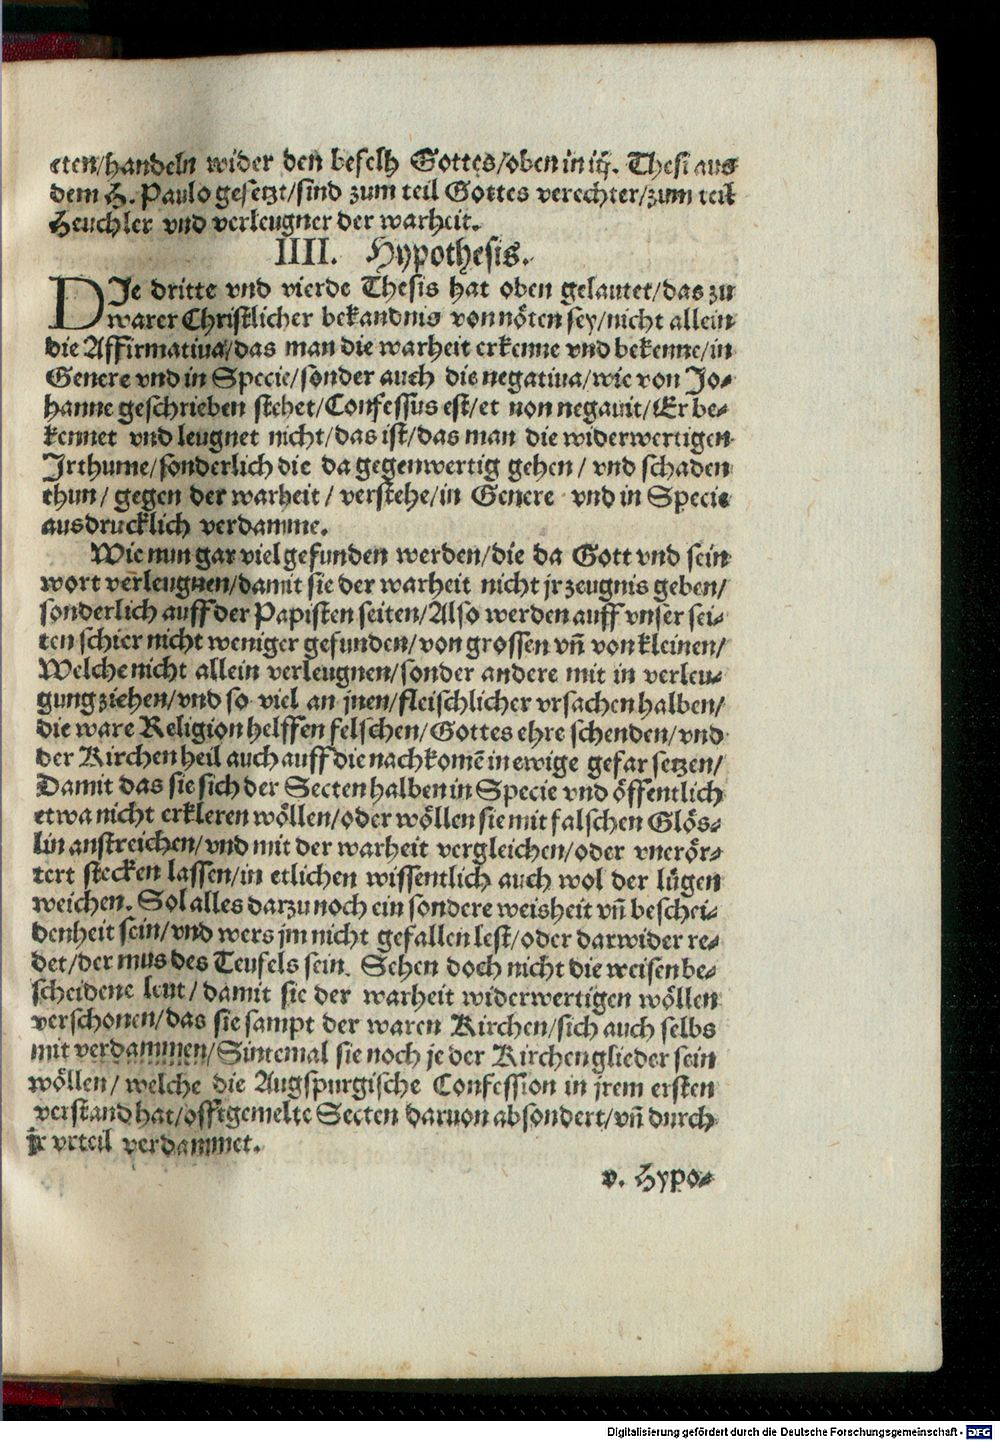 eten/handeln wider den befelh Gottes/oben in iij. Thesi aus
dem H. Paulo gesetzt/sind zum teil Gottes verechter/zum teil
Heuchler vnd verleugner der warheit.
IIII. Hypothesis.
DJe dritte vnd vierde Thesis hat oben gelautet/das zu
warer Christlicher bekandnis von nöten sey/nicht allein
die Affirmatiua/das man die warheit erkenne vnd bekenne/in
Genere vnd in Specie/sonder auch die negatiua/wie von Jo-
hanne geschrieben stehet/Confessus est/et non negauit/Er be-
kennet vnd leugnet nicht/das ist/das man die widerwertigen
Jrthume/sonderlich die da gegenwertig gehen/vnd schaden
thun/gegen der warheit/verstehe/in Genere vnd in Specie
ausdrucklich verdamme.
Wie nun gar viel gefunden werden/die da Gott vnd sein
wort verleugnen/damit sie der warheit nicht jr zeugnis geben/
sonderlich auff der Papisten seiten/Also werden auff vnser sei-
ten schier nicht weniger gefunden/von grossen vñ von kleinen/
Welche nicht allein verleugnen/sonder andere mit in verleu-
gung ziehen/vnd so viel an jnen/fleischlicher vrsachen halben/
die ware Religion helffen felschen/Gottes ehre schenden/vnd
der Kirchen heil auch auff die nachkomē in ewige gefar setzen/
Damit das sie sich der Secten halben in Specie vnd öffentlich
etwa nicht erkleren wöllen/oder wöllen sie mit falschen Glös-
lin anstreichen/vnd mit der warheit vergleichen/oder vnerör-
tert stecken lassen/in etlichen wissentlich auch wol der lügen
weichen. Sol alles darzu noch ein sondere weisheit vñ beschei-
denheit sein/vnd wers jm nicht gefallen lest/oder darwider re-
det/der mus des Teufels sein. Sehen doch nicht die weisen be-
scheidene leut/damit sie der warheit widerwertigen wöllen
verschonen/das sie sampt der waren Kirchen/sich auch selbs
mit verdammen/Sintemal sie noch je der Kirchen glieder sein
wöllen/welche die Augspurgische Confession in jrem ersten
verstand hat/offtgemelte Secten daruon absondert/vñ durch
jr vrteil verdammet.
v. Hypo-
Digitalisierung gefördert durch die Deutsche Forschungsgemeinschaft - DFG